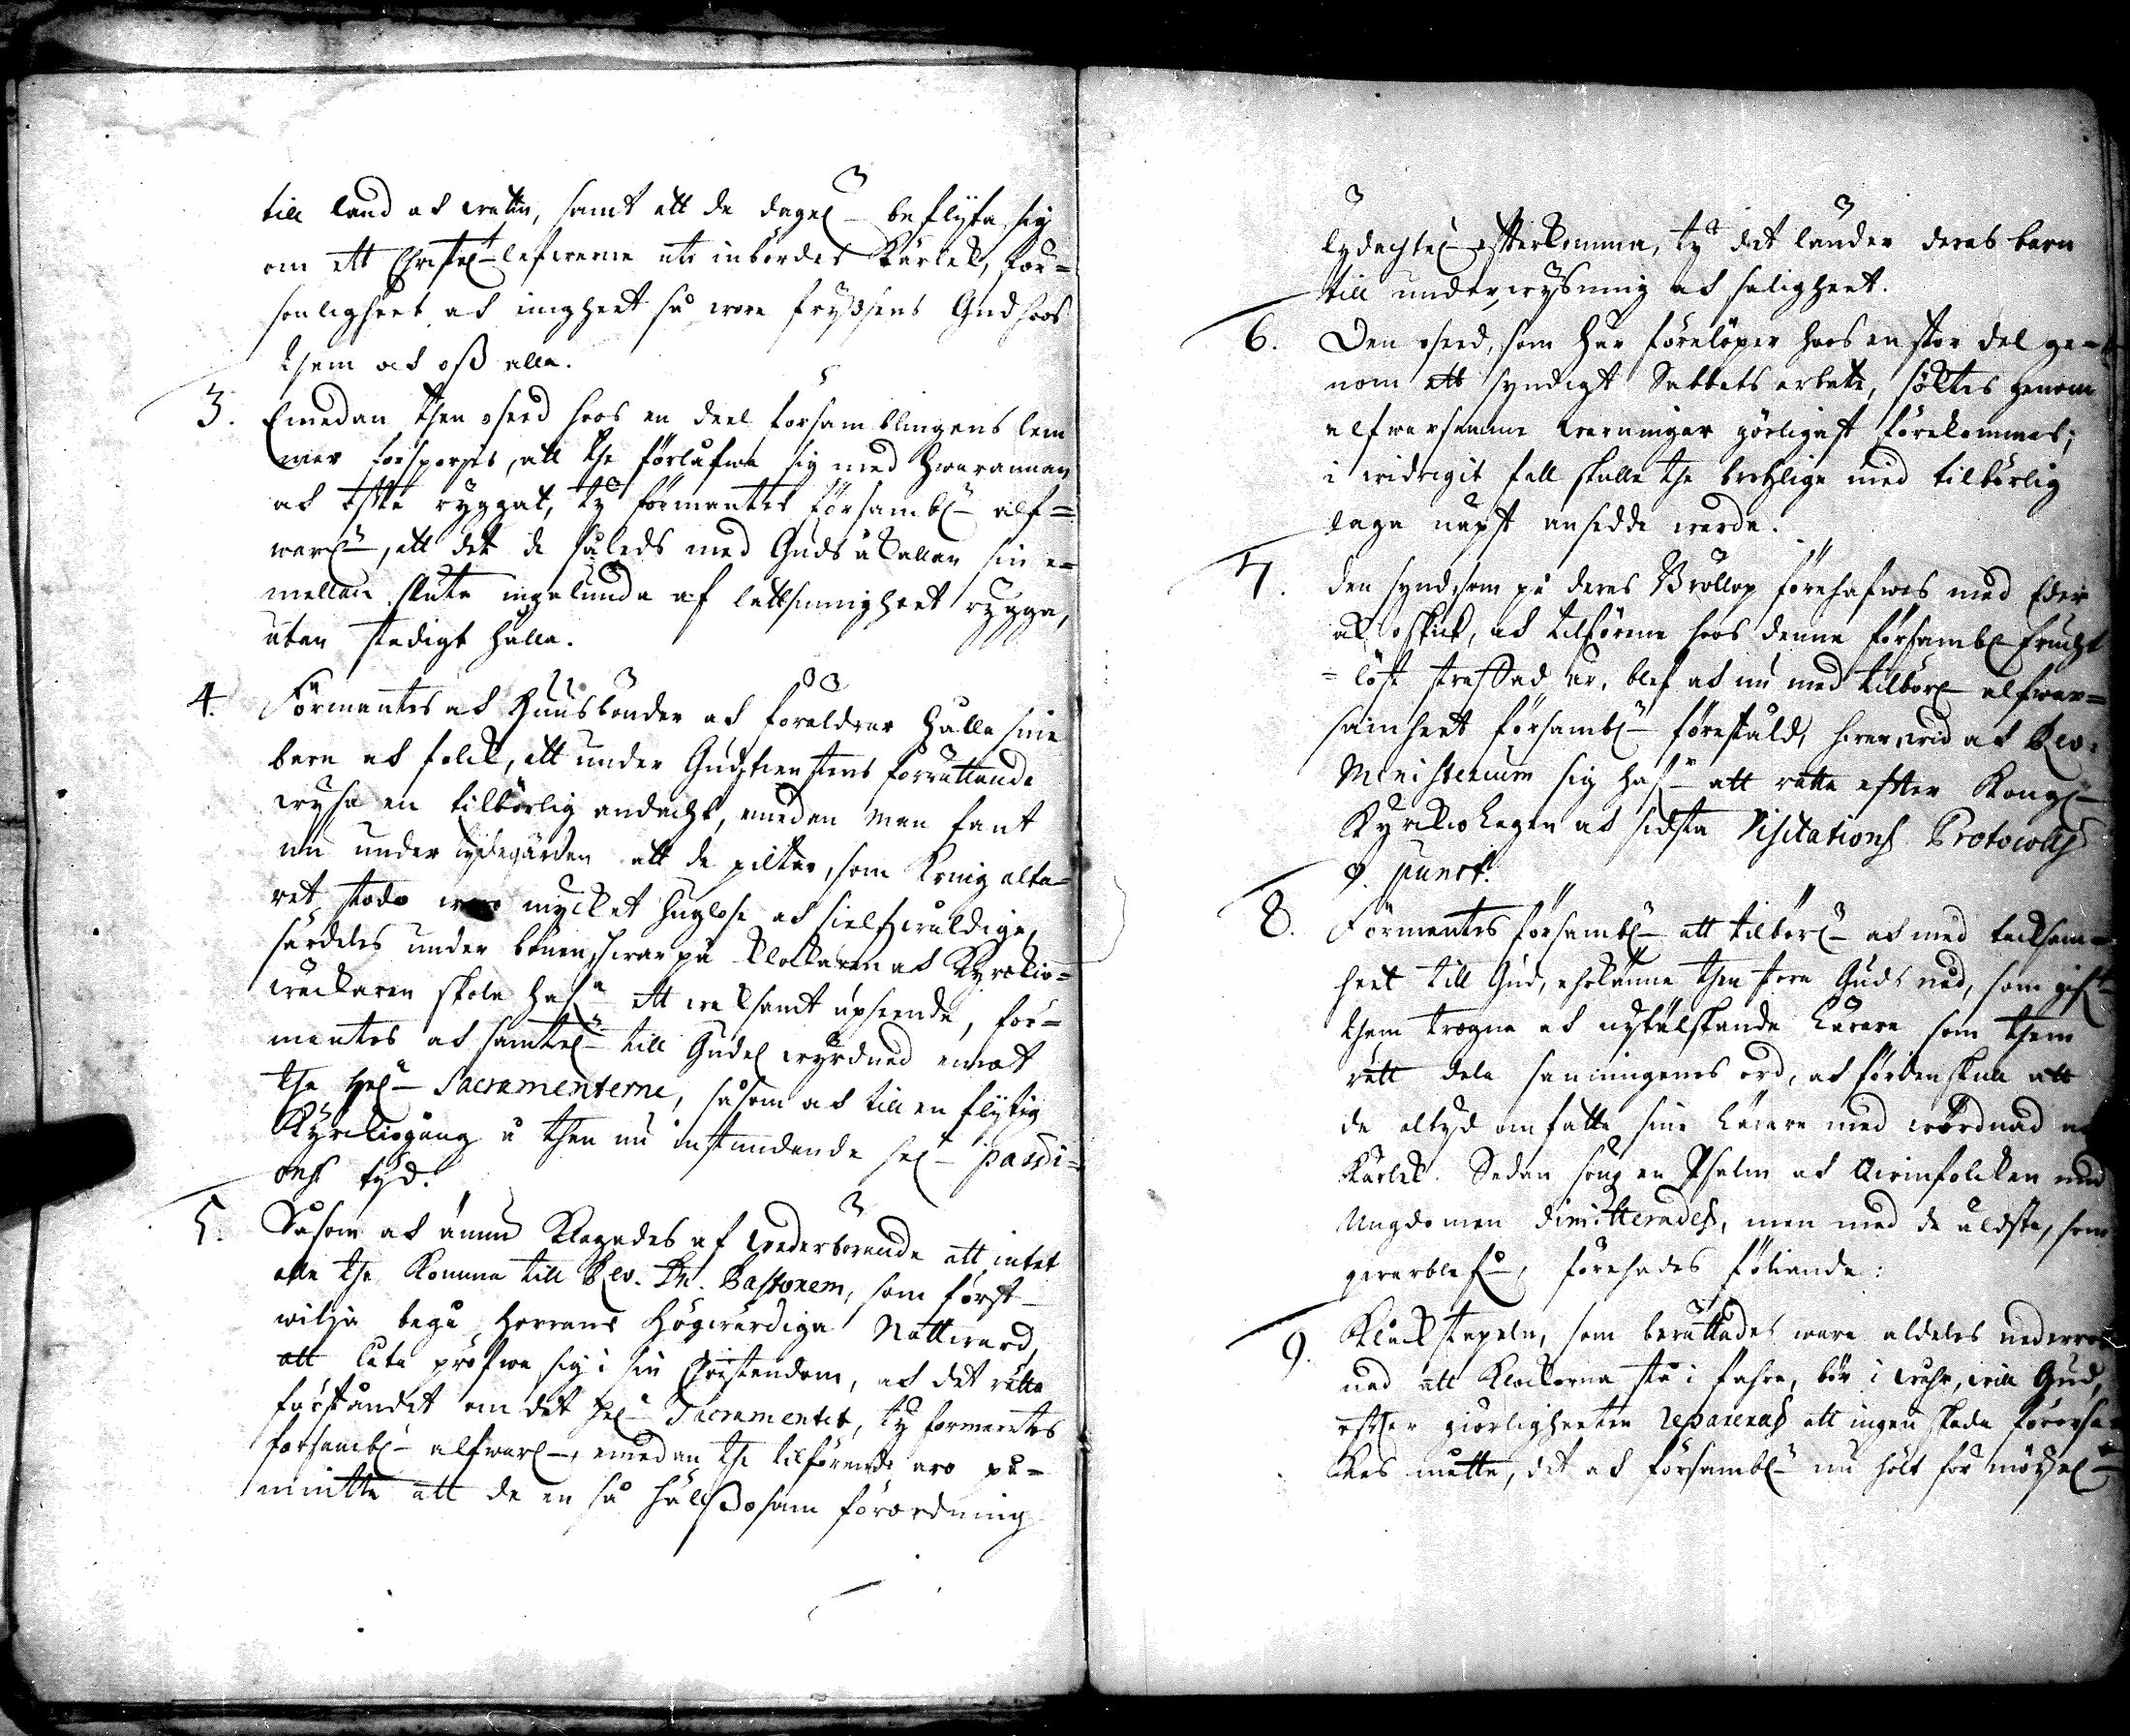 till land och watn, samt att de dagel. beflyta sig
om ett Christel. lefwerne uti inbördes Kärlek, för=
sonligheet och enigheet så wore frydsens Gud hoos
them och oss alla.
3. Emedan then oseed hoos en deel församblingens lem
mar förspörjes, att the förlåfwa sig med hwarannan
och offta ryggat, ty förmantes försambl. alf=
warl., att det de således med Guds åkallan sin e=
mellan sluta ingalunda af lättsinnigheet rygga,
utan stadigt hålla.
4. Förmantes och Huusbönder och föräldrar hålla sine
barn och folck, att under Gudztienstens förrättande
wysa en tilbörlig andacht, emedan man fant
nu under att de piltar, som kring alta=
ret stodo woro mycket huglöse och sielfswåldige,
särdeles under bönen, hwarpå klockaren och Kyrckio=
wäcktaren skola haf. ett waksamt upseende, för=
mantes och samtel. till Gudel. wyrdnad emot
the Hel. Sacramenterne, såsom och till en flytig
Kyrckiogång å then nu instundande hel. passi=
ons tyd.
5. Såsom och ännu klagades af wederbörande att intet
alla the komma till Rev. Dn. Pastorem, som först
wilja begå Herrans Högwärdiga Nattward,
att låta pröfwa sig i sin Christendom, och det rätta
förståndet om det hel. Sacramentet, ty förmantes
försambl. alfwarl., emedan the tilförende äro på=
mintte att de en så hälsosam förordning
lydachtel. efterkomma, ty det länder deras barn
till underwysning och saligheet.
6. Den oseed, som här förelöper hoos en stor del ge=
nom ett syndigt Sabbats arbete, söktes genom
alfwarsamme warningar görligast förekommas;
i widrigit fall skulle the brotzlige med tilbörlig
laga näpst ansedde warda.
7. den synd, som på deras Bröllop förehafwes med Eder
och oskick, och tilförene hoos denna försambl. frucht
=löst straffad är, blef och nu med tilbörl. alfwar=
samheet försambl. förestäld, hwarwid och Rev.
Ministerium sig haf. att rätta effter Kongl.
Kyrckio Lagen och sidsta Visitations Protocolls
9. punct.
8. Förmantes försambl. att tilbörl. och med tacksam=
heet till Gud, erkänna then stora Guds nåd, som gif.
them trogna och nytälskande Lärare som them
rätt dela sanningenes ord, och fördenskull att
de altyd omfatta sine Lärare med wördnad och
Kärlek. Sedan söng en Psalm och Qwinfolcken med
Ungdomen dimitterades, men med de äldsta, som
qwarblef., förehades föliande:
9. Klåckstapeln, som berättades wara aldeles nederrot
nad att Klockorna stå i fahra, bör i wåhr, will Gud,
effter giörligheeten repareras att ingen skada förorsa=
kas måtte, det och försambl. nu hölt för möyel.